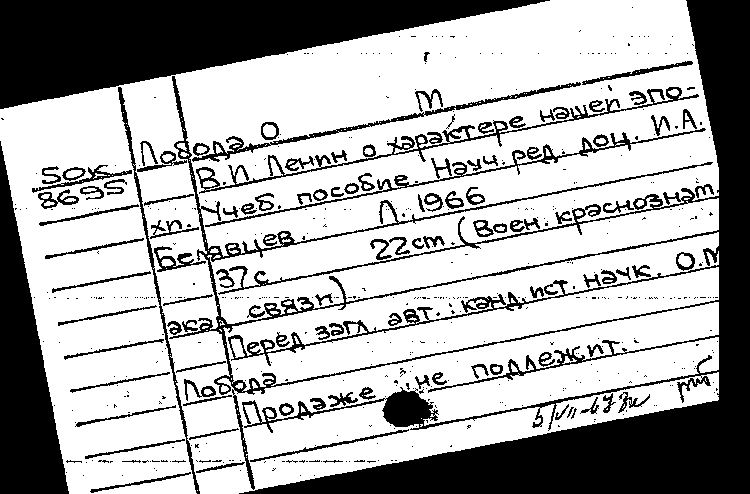 Лобода, О М
50к
8695
В.И. Ленин о характере нашей эпо-
хи. Учеб. пособие. Науч. ред. доц. И.А.
Белявцев. Л., 1966
37с. 22см. (Воен. краснознам.
акад связи)
Перед загл. авт.: канд. ист. наук. О.М
Лобода
Продаже не подлежит.